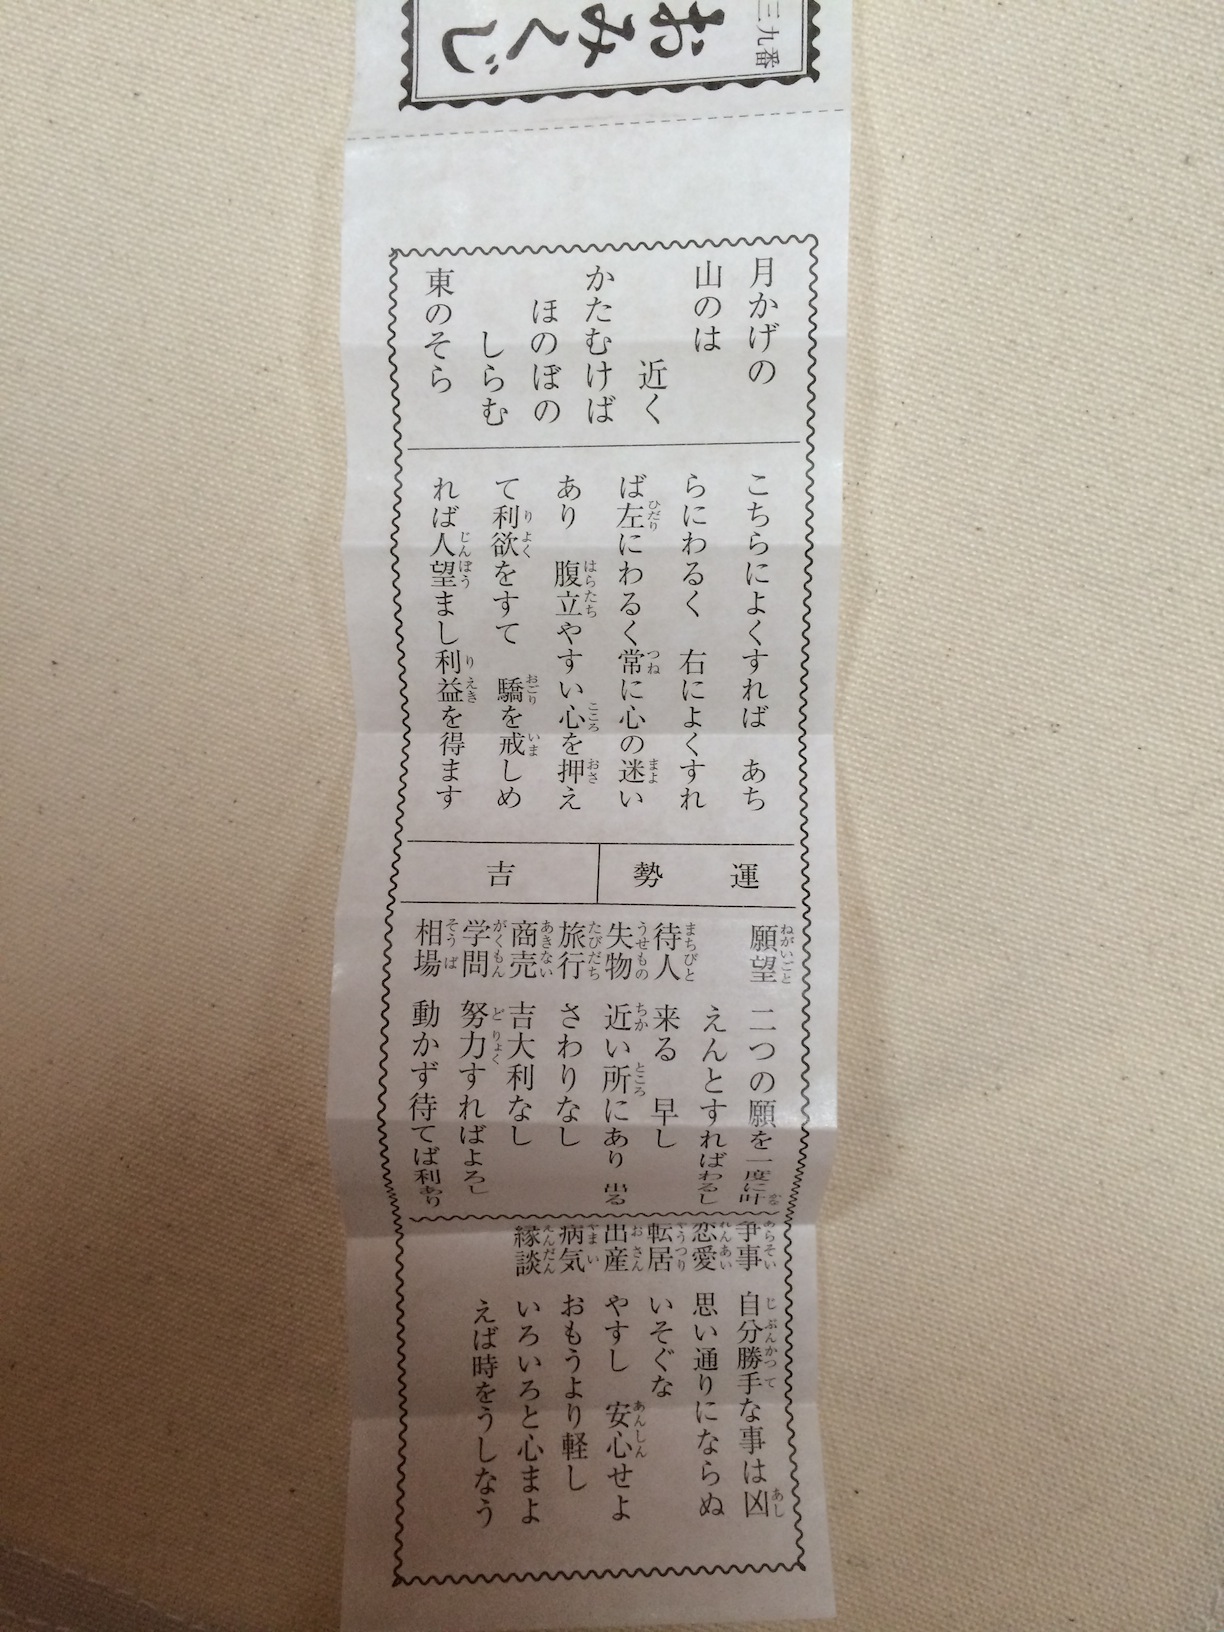 三九番
おみくじ
月かげの
山のは
近く
かたむけば
ほのぼの
しらむ
東のそら
こちらによくすれば　あち
らにわるく　右によくすれ
ば左にわるく常に心の迷い
あり　腹立やすい心を押え
て利欲をすて　驕を戒しめ
れば人望まし利益を得ます
運勢　吉
願望　二つの願を一度に叶
えんとすればわるし
待人　来る　早し
失物　近い所にあり　出る
旅行　さわりなし
商売　吉大利なし
学問　努力すればよろし
相場　動かず待てば利あり
争事　自分勝手な事は凶
恋愛　思い通りにならぬ
転居　いそぐな
出産　やすし　安心せよ
病気　おもうより軽し
縁談　いろいろと心まよ
えば時をうしなう